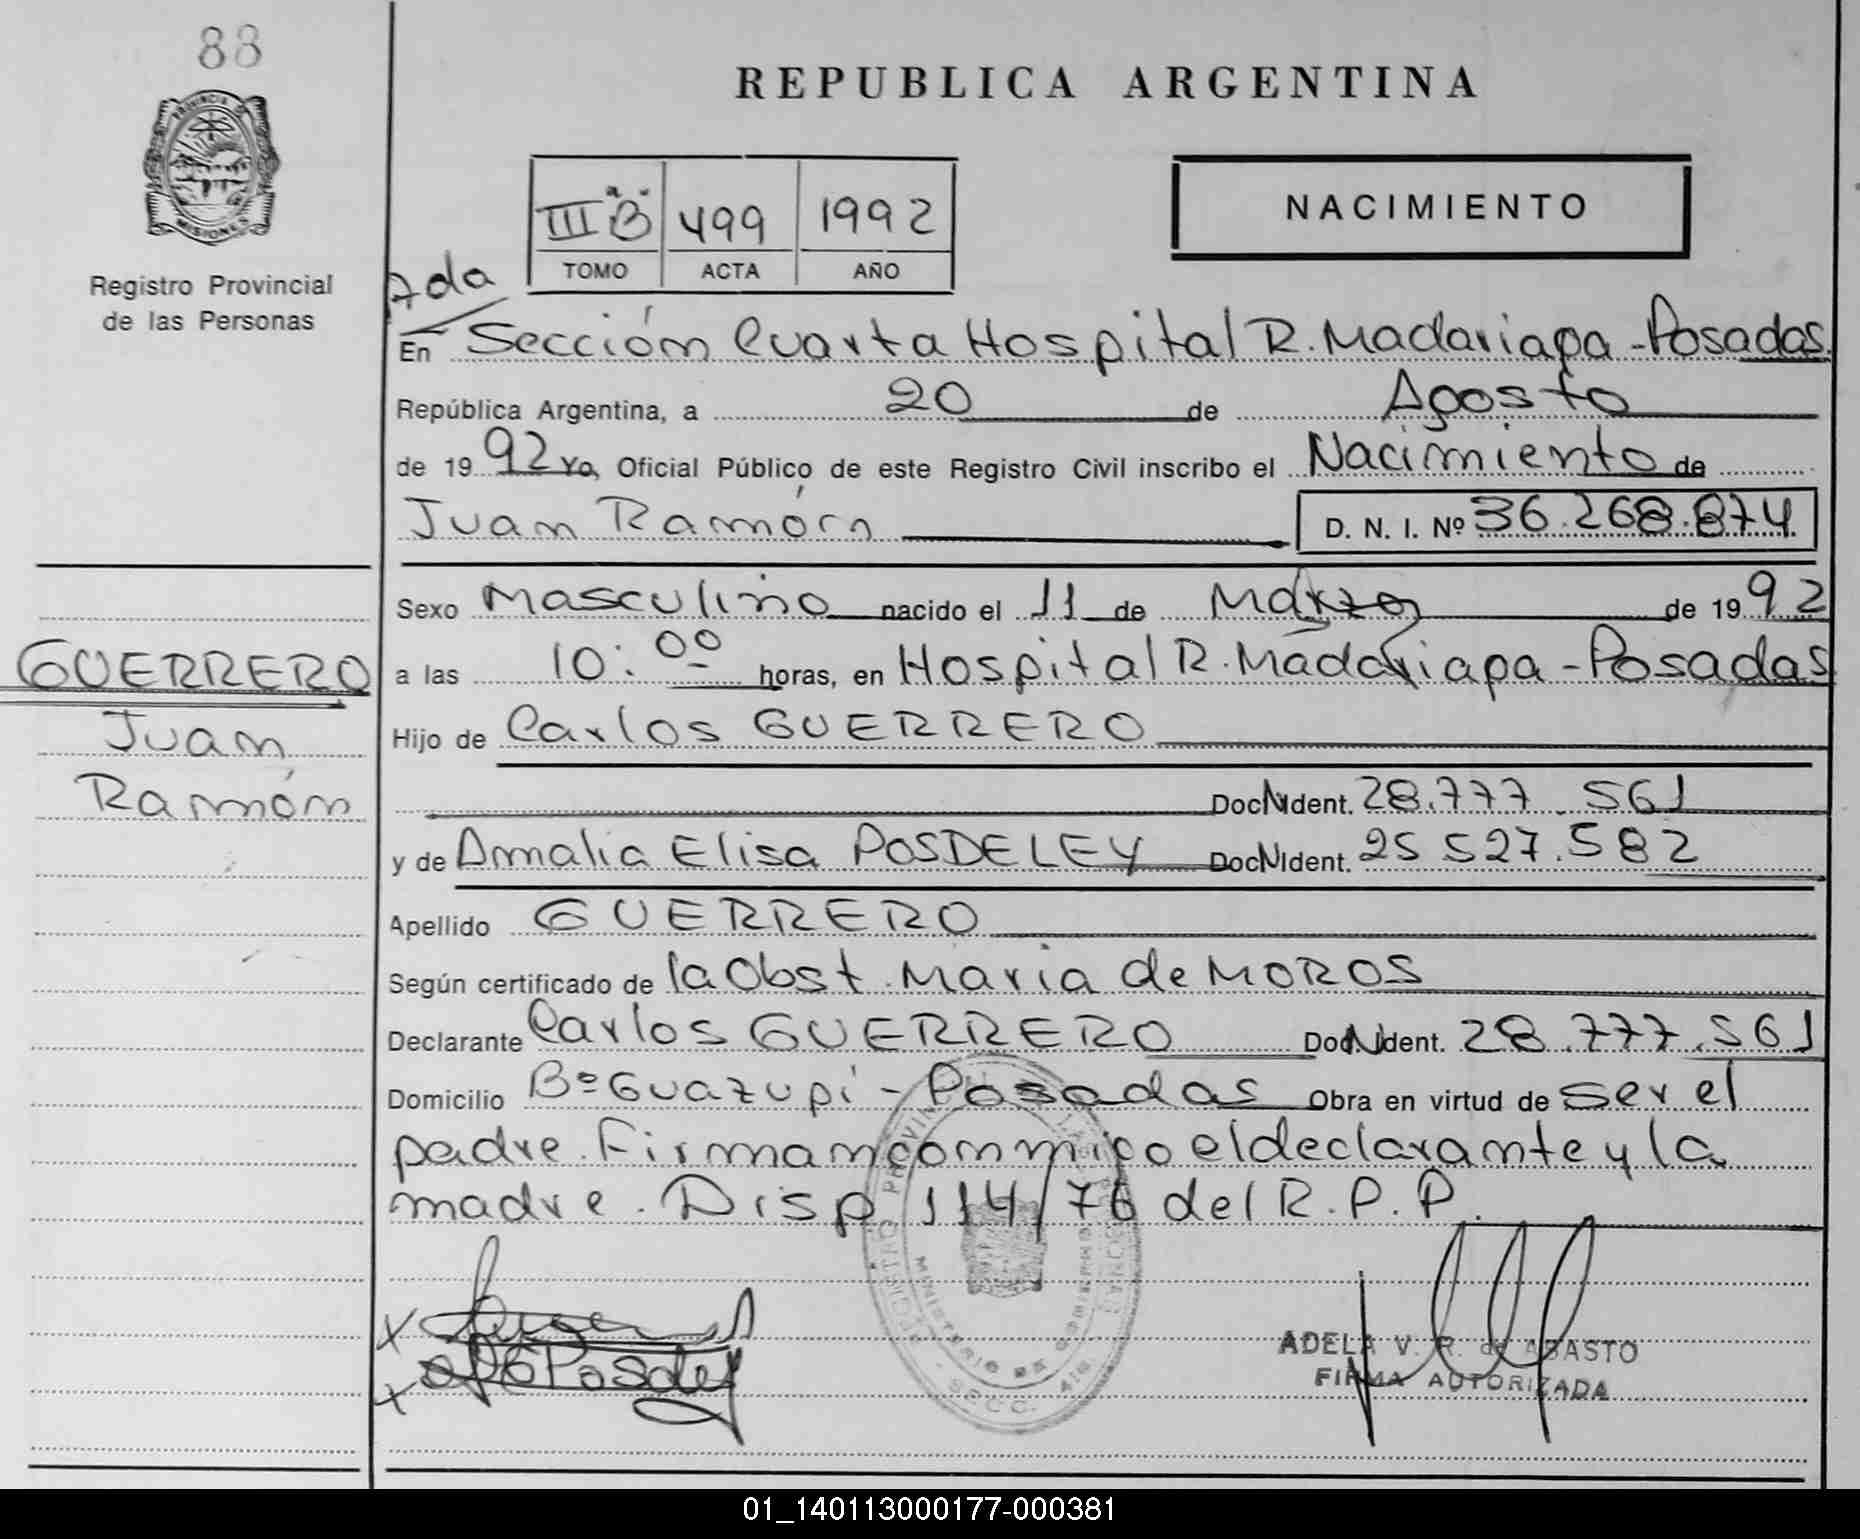 88
REPUBLICA ARGENTINA
PROVINCIA DE
MISIONES
Registro Provincial
de las Personas
III B 499 1992
TOMO ACTA AÑO
NACIMIENTO
7da
En Sección Cuarta Hospital R. Madariaga - Posadas
República Argentina, a 20 de Agosto
de 1992 Yo, Oficial Público de este Registro Civil inscribo el Nacimiento de
Juan Ramón D. N. I. Nº 36.268.874
Sexo Masculino nacido el 11 de Marzo de 1992
GUERRERO
a las 10:00 horas, en Hospital R. Madariaga - Posadas
Juan
Hijo de Carlos GUERRERO
Ramón
Doc N Ident. 28.777.561
y de Amalia Elisa POSDELEY Doc N Ident. 25.527.582
Apellido GUERRERO
Según certificado de la Obst. Maria de MOROS
Declarante Carlos GUERRERO Doc N Ident. 28.777.561
Domicilio Bº Guazupi - Posadas Obra en virtud de ser el
padre. Firman conmigo el declarante y la
madre. Disp 114/76 del R.P.P.
ADELA V. R. de ABASTO
FIRMA AUTORIZADA
01_140113000177-000381